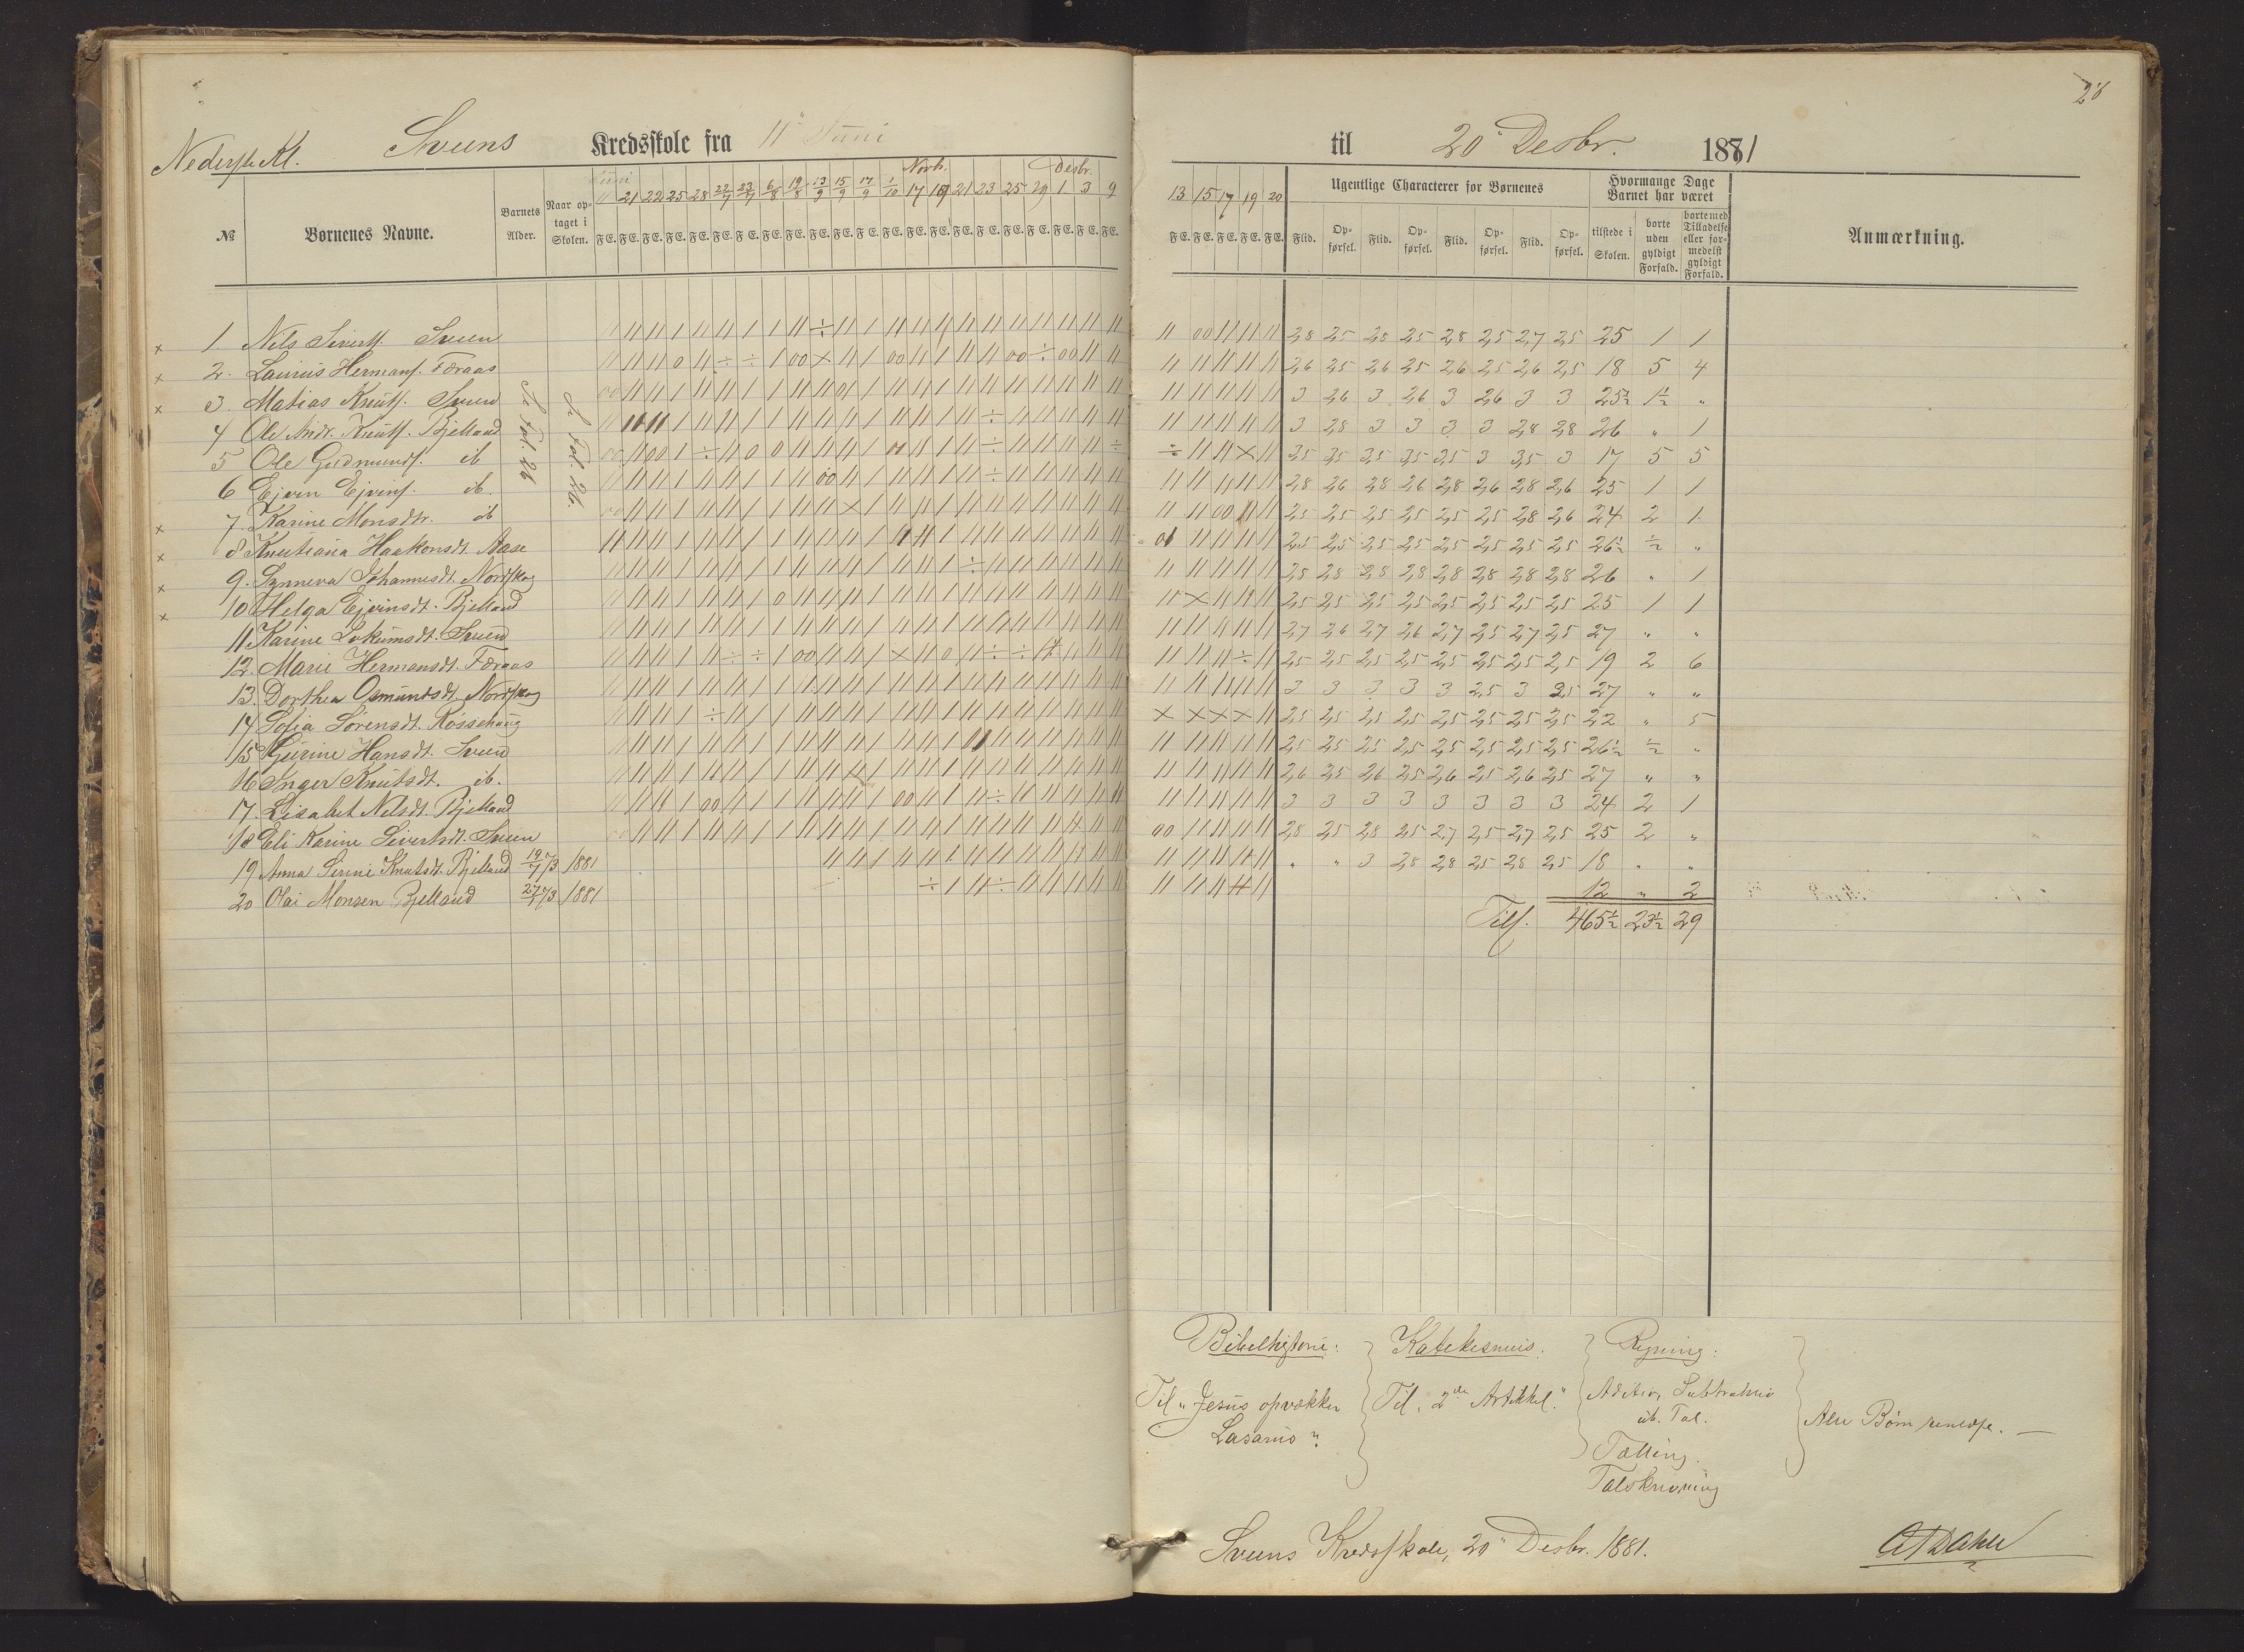 28
Nederste Kl. Sveens Kredsskole fra 11" Juni til 20" Desbr. 1881
Novb. Desbr.
Juni
11 21 22 25 28 22/7 23/7 6/8 19/8 13/9 15/9 17/9 1/10 17 19 21 23 25 29 1 3 9 13 15 17 19 20
№ Børnenes Navne. Barnets Alder. Naar optaget i Skolen. F.E. Ugentlige Characterer for Børnenes Hvormange Dage Barnet har været Anmærkning.
Flid. Opførsel. Flid. Opførsel. Flid. Opførsel. Flid. Opførsel. tilstede i Skolen. borte uden gyldigt Forfald. borte med Tilladelse eller formedelst gyldigt Forfald.
Se Fol. 26
Se Fol. 26.
1 Nils Siverts. Sveen 2,8 2,5 2,8 2,5 2,8 2,5 2,7 2,5 25 1 1
2. Laurius Hermans. Færaas 2,6 2,5 2,6 2,5 2,6 2,5 2,6 2,5 18 5 4
3. Matias Knuts. Sveen 3 2,6 3 2,6 3 2,6 3 3 25½ 1½ "
4 Ole Andr. Knuts. Bjelland 3 2,8 3 3 3 3 2,8 2,8 26 " 1
5 Ole Gudmunds. ib 3,5 3,5 3,5 3,5 2,5 3 3,5 3 17 5 5
6 Ejvin Ejvins. ib. 2,8 2,6 2,8 2,6 2,8 2,6 2,8 2,6 25 1 1
7. Karine Monsdtr. ib 2,5 2,5 2,5 2,5 2,5 2,5 2,8 2,6 24 2 1
8 Knutiana Haakonsdt. Aase 2,5 2,5 2,5 2,5 2,5 2,5 2,5 2,5 26½ ½ "
9. Synneva Johannesdt. Nordskog 2,8 2,8 2,8 2,8 2,8 2,8 2,8 2,8 26 " 1
10 Helga Ejvinsdt. Bjelland 2,5 2,5 2,5 2,5 2,5 2,5 2,5 2,5 25 1 1
11 Karine Lokumsdt. Sveen 2,7 2,6 2,7 2,6 2,7 2,5 2,7 2,5 27 " "
12. Marie Hermansdt. Færaas 2,5 2,5 2,5 2,5 2,5 2,5 2,5 2,5 19 2 6
13. Dorthea Osmundsdt. Nordskog 3 3 3 3 3 2,5 3 2,5 27 " "
14 Sofia Sørensdt. Røssehaug 2,5 2,5 2,5 2,5 2,5 2,5 2,5 2,5 22 " 5
15 Gurine Hansdt. Sveen 2,5 2,5 2,5 2,5 2,5 2,5 2,5 2,5 26½ ½ "
16 Inger Knutsdt. ib. 2,6 2,5 2,6 2,5 2,6 2,5 2,6 2,5 27 " "
17. Lisabet Nilsdt. Bjelland 3 3 3 3 3 3 3 3 24 2 1
18 Eli Karine Sivertsdt. Sveen 2,8 2,5 2,8 2,5 2,7 2,5 2,7 2,5 25 2 "
19 Anna Serine Knutsdt. Bjelland 19/7 73 1881 " " 3 2,8 2,8 2,5 2,8 2,5 18 " "
20 Olai Monsen Bjelland 27/7 73 1881 12 " 2
Tils. 465½ 23½ 29
Bibelhistorie: Katekismus. Regning:
Til "Jesus opvækker Til "2den Artikkel." Adition, Subtraktio
Lasarus". ub. Tal. Alle Børn
Tælling.
Talskrivning
Sveens Kredsskole, 20" Desbr. 1881.